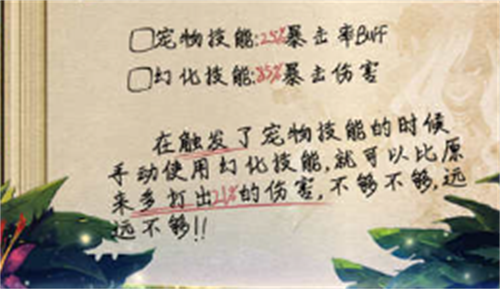 □宠物技能:25%暴击率Buff
□幻化技能:85%暴击伤害
在触发了宠物技能的时候
手动使用幻化技能,就可以比原
来多打出21%的伤害,不够不够,远
远不够!!